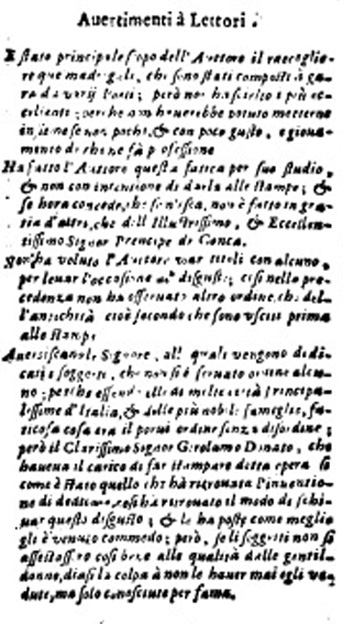 Auertimenti à Lettori.
E stato principale scopo dell'Auttore il raccoglie-
re que madrigali, che sono stati composti à ga-
ra da varij Poeti; però non ha scielto i più ec-
cellenti; perche non hauerebbe potuto metterne
insieme se non pochi, & con poco gusto, e gioua-
mento di chi ne fà professione
Ha fatto l'Auttore questa fatica per suo studio,
& non con intentione di darla alle stampe; &
se hora concede, che s'enisca, non è fatto in gra-
tia d'altri, che dell'Illustrissimo, & Eccellen-
tissimo Signor Prencipe di Conca.
Non ha voluto l'Auttore titoli con alcuno,
per leuar l'occasione disgusti; e si nella pre-
cedenza non ha osseruato altro ordine, che del-
l'antichità cioè secondo che sono vsciti prima
alle stampe
Auertiscano le Signore, all quali vengono dedi-
cati i soggetti, che non si è seruato ordine alcu-
no; perche essendo elle di molte città Principa-
lissime d'Italia, & delle più nobili fameglie, fa-
ticosa cosa era il porui ordine senza disordine;
però il Clarissimo Signor Girolamo Donato, che
haueua il carico di far stampare detta opera sì
come è stato quello che hà ritrouata l'inuentio-
ne di dedicare, così hà ritrouato il modo di schi-
uar questo disgusto; & le ha poste come meglio
gli è venuto commodo; però, se li soggetti non si
assestassero così bene alle qualità delle gentil-
donne, diasi la colpa à non le hauer mai egli ve-
dute, ma solo conosciute per fama.